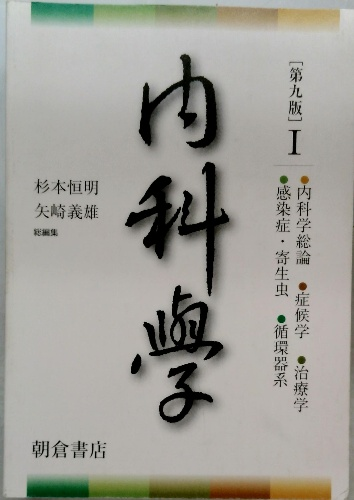 内科學
［第九版］I
●内科学総論 ●症候学 ●治療学
●感染症・寄生虫 ●循環器系
杉本恒明
矢崎義雄
総編集
朝倉書店